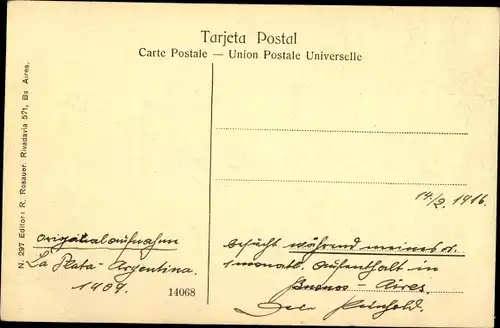 Tarjeta Postal
Carte Postale — Union Postale Universelle
N. 297 Editor: R. Rosauer. Rivadavia 571, Bs Aires.
14/2. 1916.
Originalaufnahm
La Plata - Argentina.
1909.
14068
besucht während meines
1 monatl. Aufenthalt in
Buenos - Aires.
Reinhold.